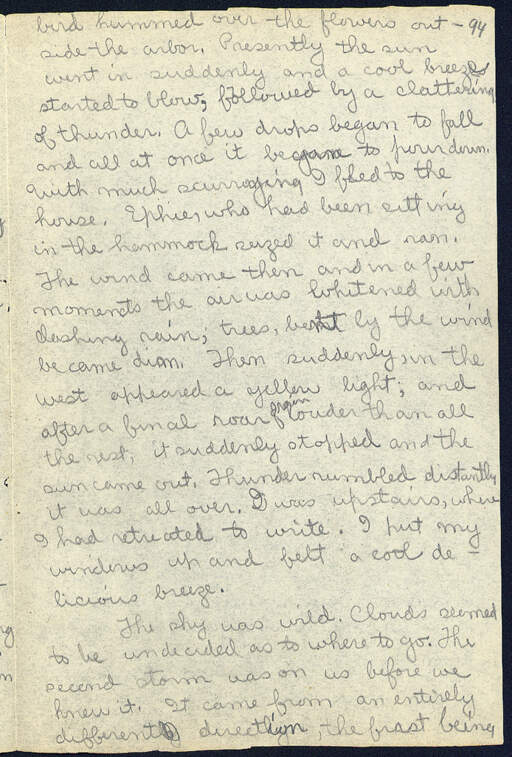 bird hummed over the flowers out- 94
side the arbor. Presently the sun
went in suddenly and a cool breeze
started to blow, followed by a clattering
of thunder. A few drops began to fall
and all at once it began to pour down.
With much scurrying I fled to the
house. Ephie, who had been sitting
in the hammock seized it and ran.
The wind came then and in a few
moments the air was whitened with
dashing rain; trees, bent by the wind
became dim. Then suddenly, in the
west appeared a yellow light; and
after a final roar louder than all
the rest, it suddenly stopped and the
sun came out. Thunder rumbled distantly
it was all over. I was upstairs, where
I had retreated to write. I put my
windows up and felt a cool de-
licious breeze.
The sky was wild. Clouds seemed
to be undecided as to where to go. The
second storm was on us before we
knew it. It came from an entirely
different direction, the first being